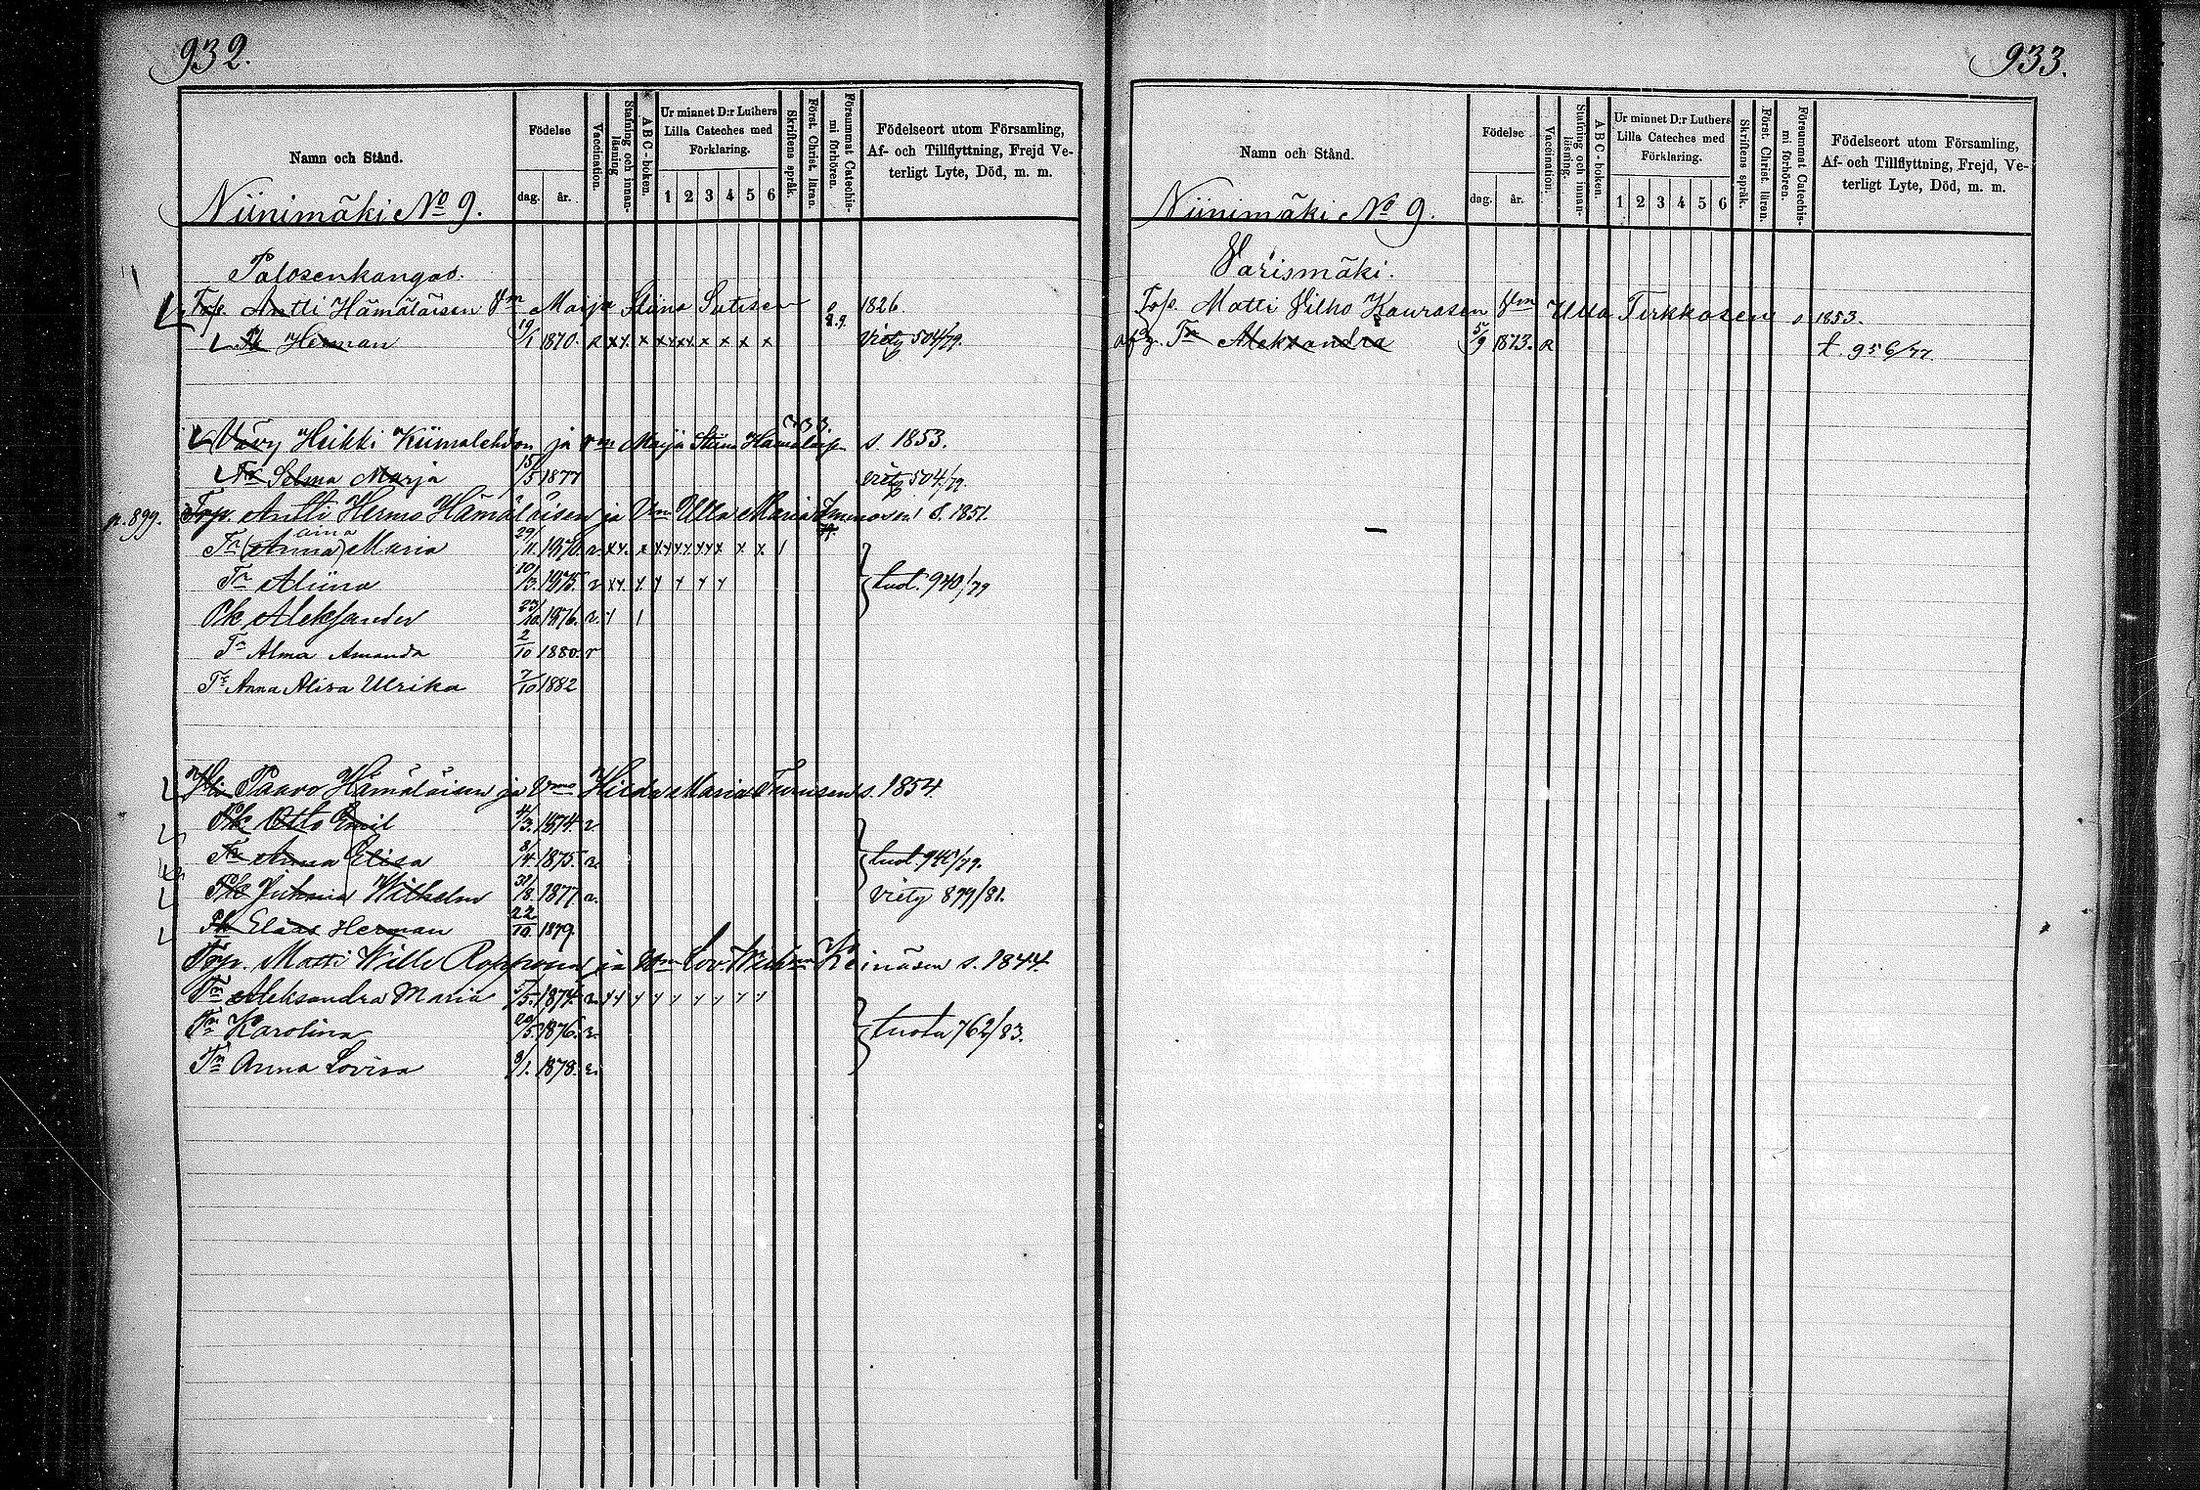 932.
Namn och Stånd.
Födelse
dag. år.
Vaccination.
Stafning och innan-läsning.
ABC-boken.
Ur minnet D:r Luthers
Lilla Cateches med
Förklaring.
1 2 3 4 5 6
Skriftens språk.
Först. Christ. läran.
Försummat Catechis-mi förhören.
Födelseort utom Församling,
Af- och Tillflyttning, Frejd Ve-
terligt Lyte, Död, m. m.
Niinimäki No 9.
Palosenkangas.
Torp. Antti Hämäläisen Vm Marja Stiina Sutisen 1826.
Pk Herman 19/1 1870. viety 504/79.
Vävy Heikki Kiimalehdon ja vm Marja Stiina Hämäläisen s. 1853.
Tr Selma Marja 15/5 1877 viety 504/79.
p. 899. Torp. Antti Hermo Hämäläisen ja Vmo Ulla Maria Immosen s. 1851.
Tr (Anna) Maria 29/11. 1870.
aina
Tr Aliina 10/3. 1875. tuol. 940/79
Pk Aleksander 23/10. 1876.
Tr Alma Amanda 2/10 1880. r
Tr Anna Alisa Ulrika 7/10 1882
Paavo Hämäläisen ja Vmo Hilda Maria Turusen s. 1854
Pk Otto Emil 4/3. 1874.
Tr Anna Elisa 8/4. 1875. tuol. 940/79.
Pk Juhana Wilhelm 31/8. 1877 viety 899/81.
Pk Elias Herman 22/10. 1879.
Torp. Matti Wille Ropposen ja Vm Lov. Wilh:na Keinäsen s. 1844.
Tr Aleksandra Maria 5/5. 1874.
Tr Karolina 20/5. 1876. tuotu 762/83.
Tr Anna Lovisa 8/1. 1878.
933.
Namn och Stånd.
Födelse
dag. år.
Vaccination.
Stafning och innan-läsning.
ABC-boken.
Ur minnet D:r Luthers
Lilla Cateches med
Förklaring.
1 2 3 4 5 6
Skriftens språk.
Först. Christ. läran.
Försummat Catechis-mi förhören.
Födelseort utom Församling,
Af- och Tillflyttning, Frejd, Ve-
terligt Lyte, Död, m. m.
Niinimäki No 9.
Varismäki.
Torp. Matti Vilho Kaurasen Vm Ulla Tirkkosen s 1853.
Tr Aleksandra 5/9 1873. t. 956/77